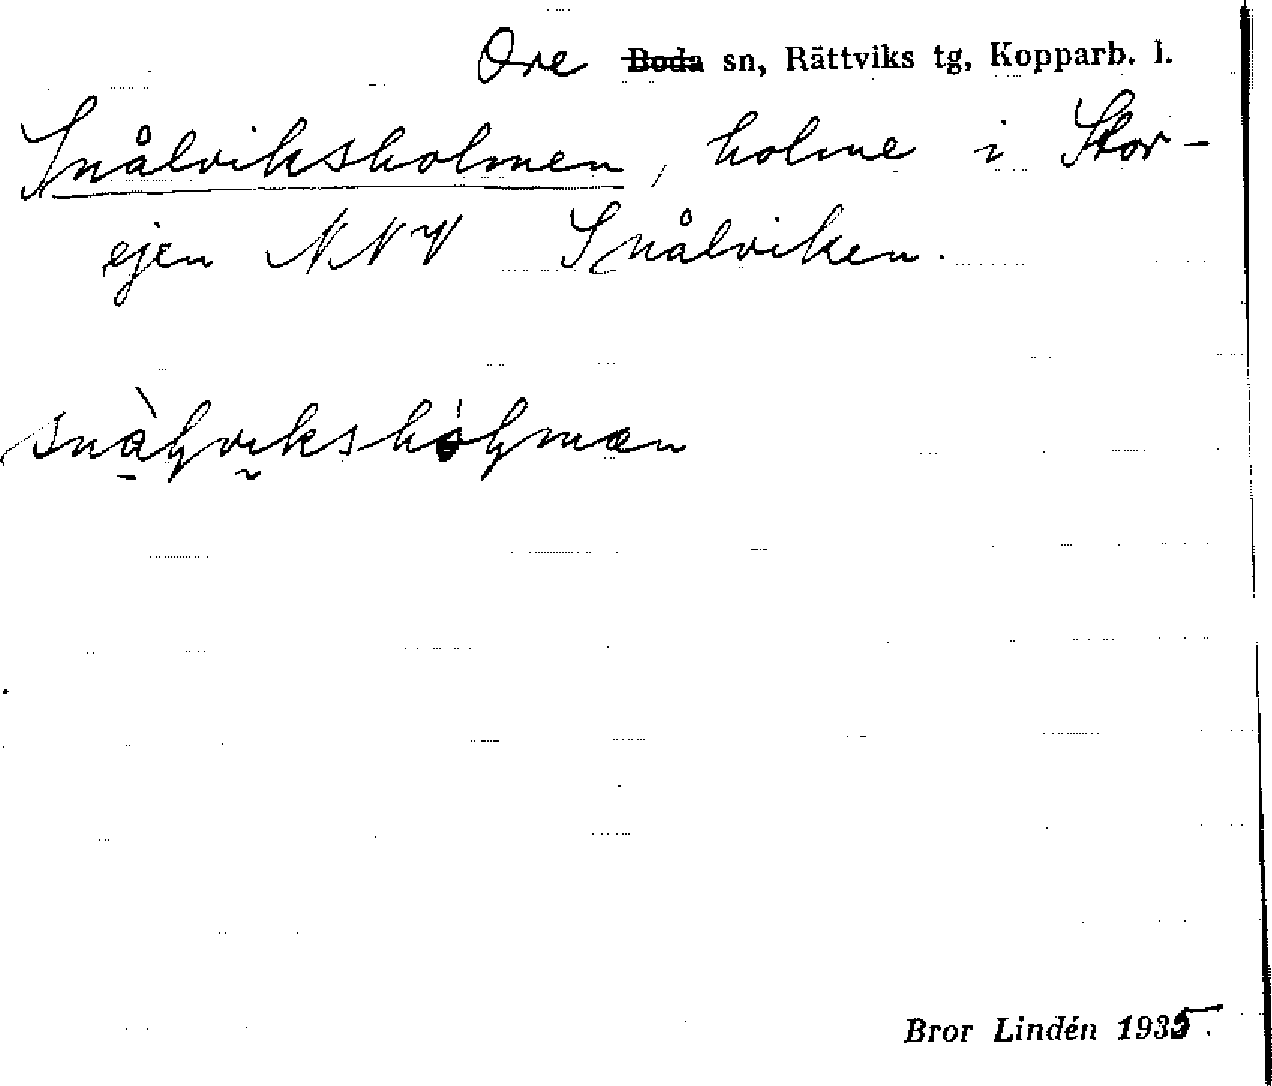 Ore Boda sn, Rättviks tg, Kopparb. l.
Snålviksholmen, holme i Stor-
ejen NNV Snålviken.
Bror Lindén 1935.